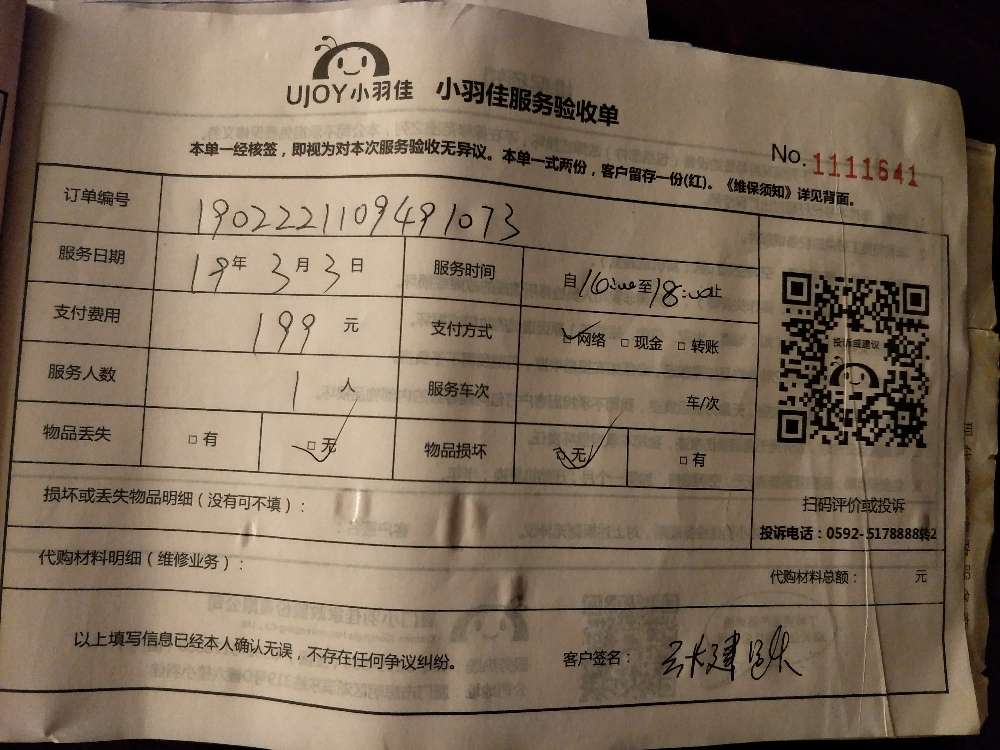 UJOY小羽佳 小羽佳服务验收单
No.1111641
本单一经核签，即视为对本次服务验收无异议。本单一式两份，客户留存一份(红)。《维保须知》详见背面。
订单编号 1902221109491073
服务日期 19年3月3日 服务时间 自16:00至18:00止
支付费用 199元 支付方式 网络 现金 转账
服务人数 1人 服务车次 车/次
物品丢失 有 无 物品损坏 无 有
投诉或建议
扫码评价或投诉
投诉电话：0592-5178888转2
损坏或丢失物品明细（没有可不填）：
代购材料明细（维修业务）：
代购材料总额： 元
以上填写信息已经本人确认无误，不存在任何争议纠纷。 客户签名：